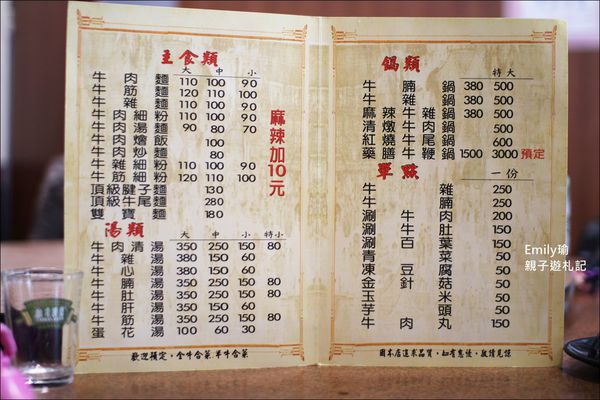 主食類
大 中 小
牛肉麵 110 100 90
牛筋麵 120 110 100
牛雜麵 110 100 90
牛肉細粉 110 100 90
牛肉湯麵 90 80 70
牛肉燴飯 100
牛肉炒麵 80
牛雜細粉 110 100 90
牛筋細粉 120 110 100
頂級腱子麵 130
頂級牛尾麵 280
雙寶麵 180
麻辣加10元
湯類
大 中 小 特小
牛肉清湯 350 250 150 80
牛雜湯 380 150 60
牛心湯 380 150 60
牛腩湯 350 250 150 80
牛肚湯 350 250 150 80
牛肝湯 350 150 60
牛筋湯 350 250 150 80
蛋花湯 100 60 30
歡迎預定。全牛合菜.半牛合菜
鍋類
特大
牛腩鍋 380 500
牛雜鍋 380 500
麻辣牛雜鍋 380 500
清燉牛肉鍋 500
紅燒牛尾鍋 600
藥膳牛鞭鍋 1500 3000 預定
單點
一份
牛雜 250
牛腩 250
涮牛肉 200
涮牛肚 150
涮百葉 150
青菜
凍豆腐 50
金針菇 50
玉米 50
芋頭 50
牛肉丸 150
因本店追求品質。如有怠慢。敬請見諒
Emily瑜
親子遊札記